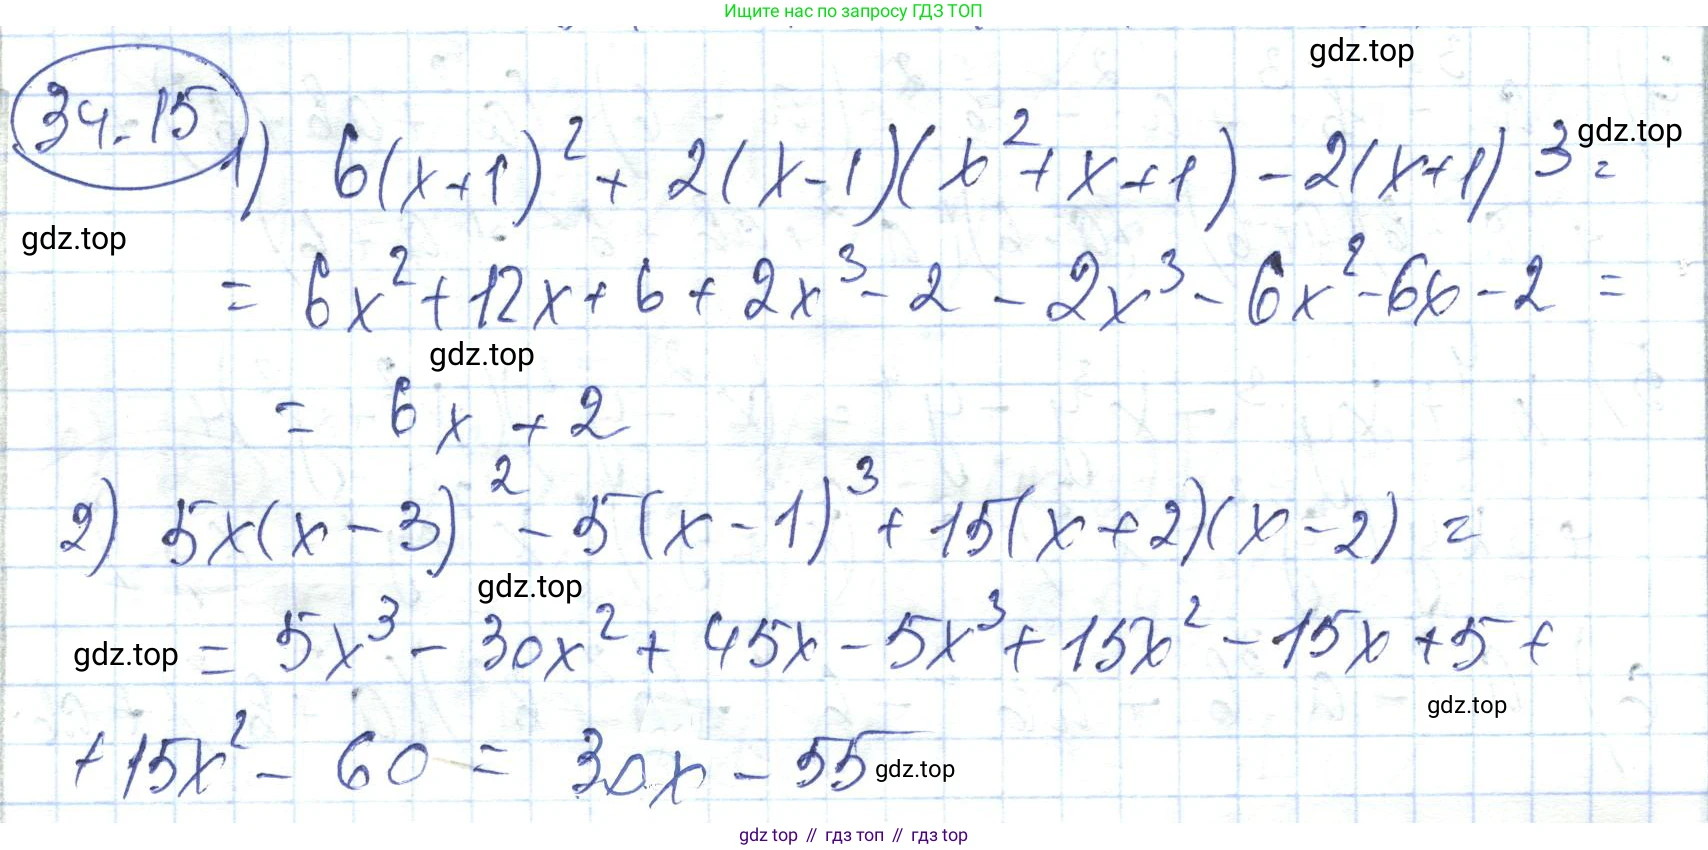 Ищите нас по запросу ГДЗ ТОП
gdz.top
34.15
1) 6(x+1)² + 2(x-1)(x²+x+1) - 2(x+1)³ =
gdz.top
gdz.top
= 6x² + 12x + 6 + 2x³ - 2 - 2x³ - 6x² - 6x - 2 =
gdz.top
= 6x + 2
2) 5x(x-3)² - 5(x-1)³ + 15(x+2)(x-2) =
gdz.top
= 5x³ - 30x² + 45x - 5x³ + 15x² - 15x + 5 +
gdz.top
gdz.top
+ 15x² - 60 = 30x - 55
gdz.top
gdz top // гдз топ // gdz top